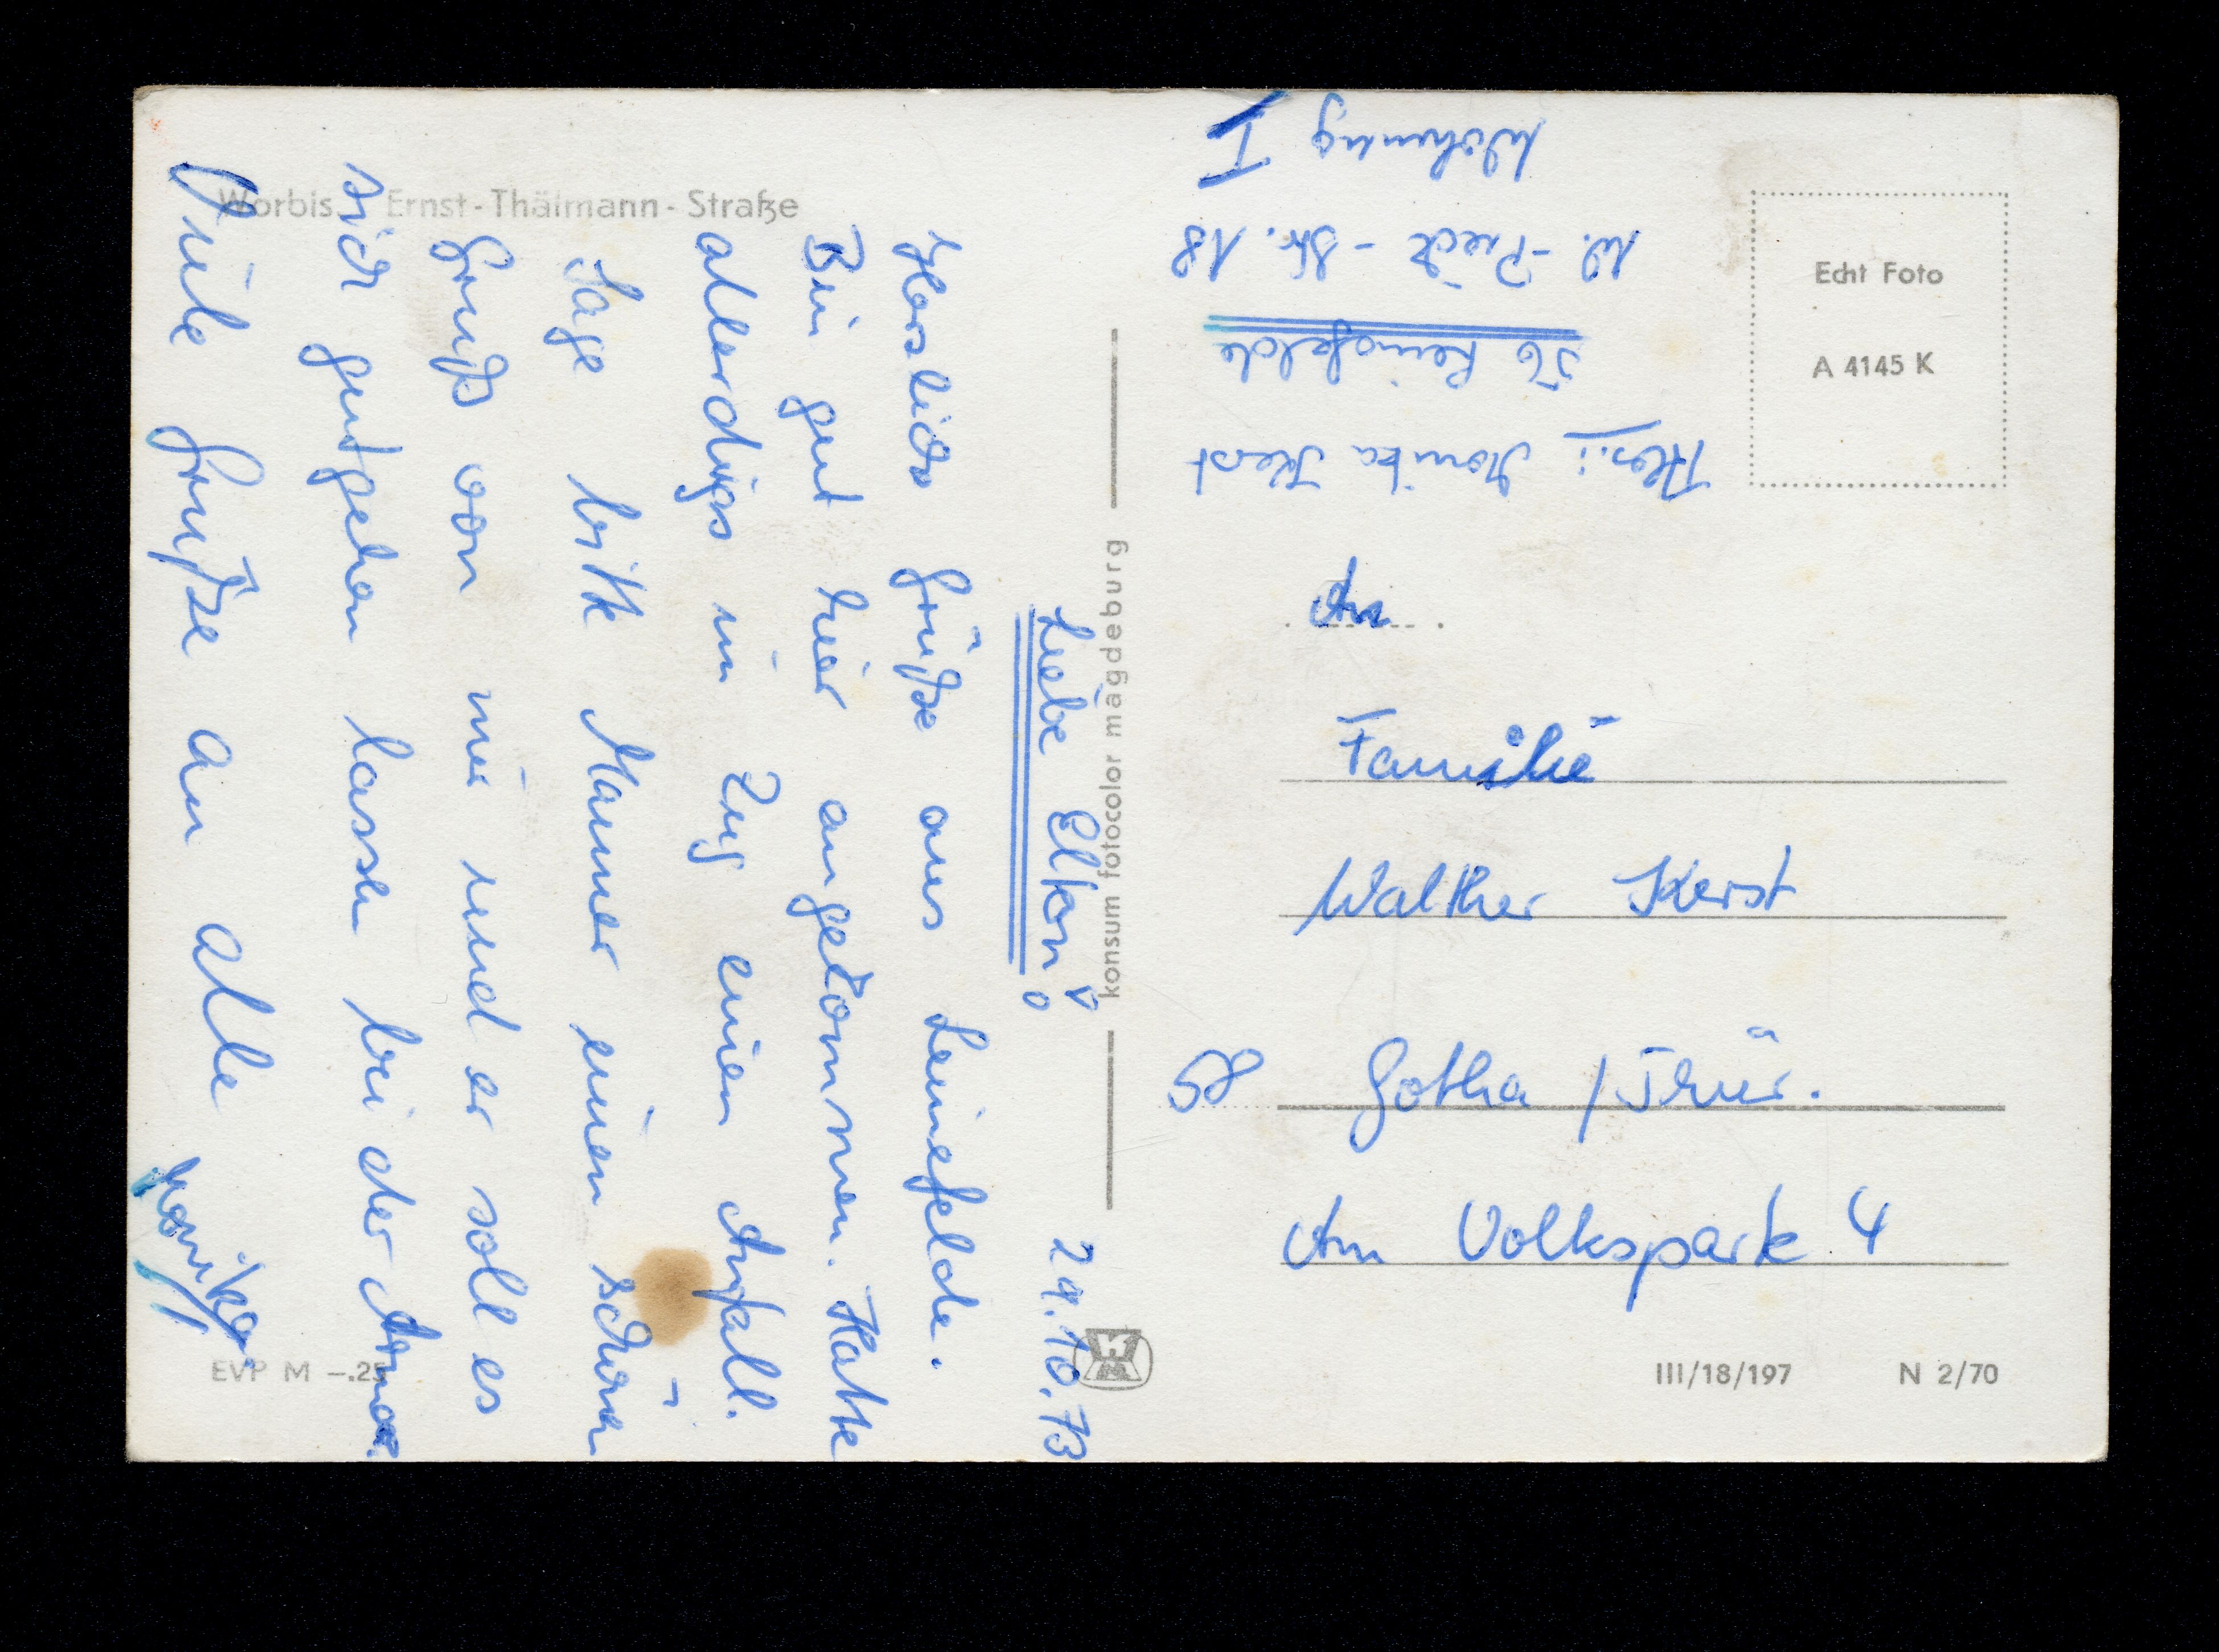 Worbis. Ernst-Thälmann-Straße
29.10.73
Liebe Eltern!
Herzliche Grüße aus Leinefelde.
Bin gut hier angekommen. Hatte
allerdings im Zug einen Anfall.
Sage bitte Manner einen schönen
Gruß von mir und er soll es
sich gut gehen lassen bei der Armee.
Viele Grüße an alle Monika.
EVP M -.25
konsum fotocolor magdeburg
Abs.: Monika Kerst
56 Leinefelde
W.-Pieck-Str. 18
Wohnung I
Echt Foto
A 4145 K
An
Familie
Walther Kerst
58 Gotha / Thür.
Am Volkspark 4
III/18/197 N 2/70